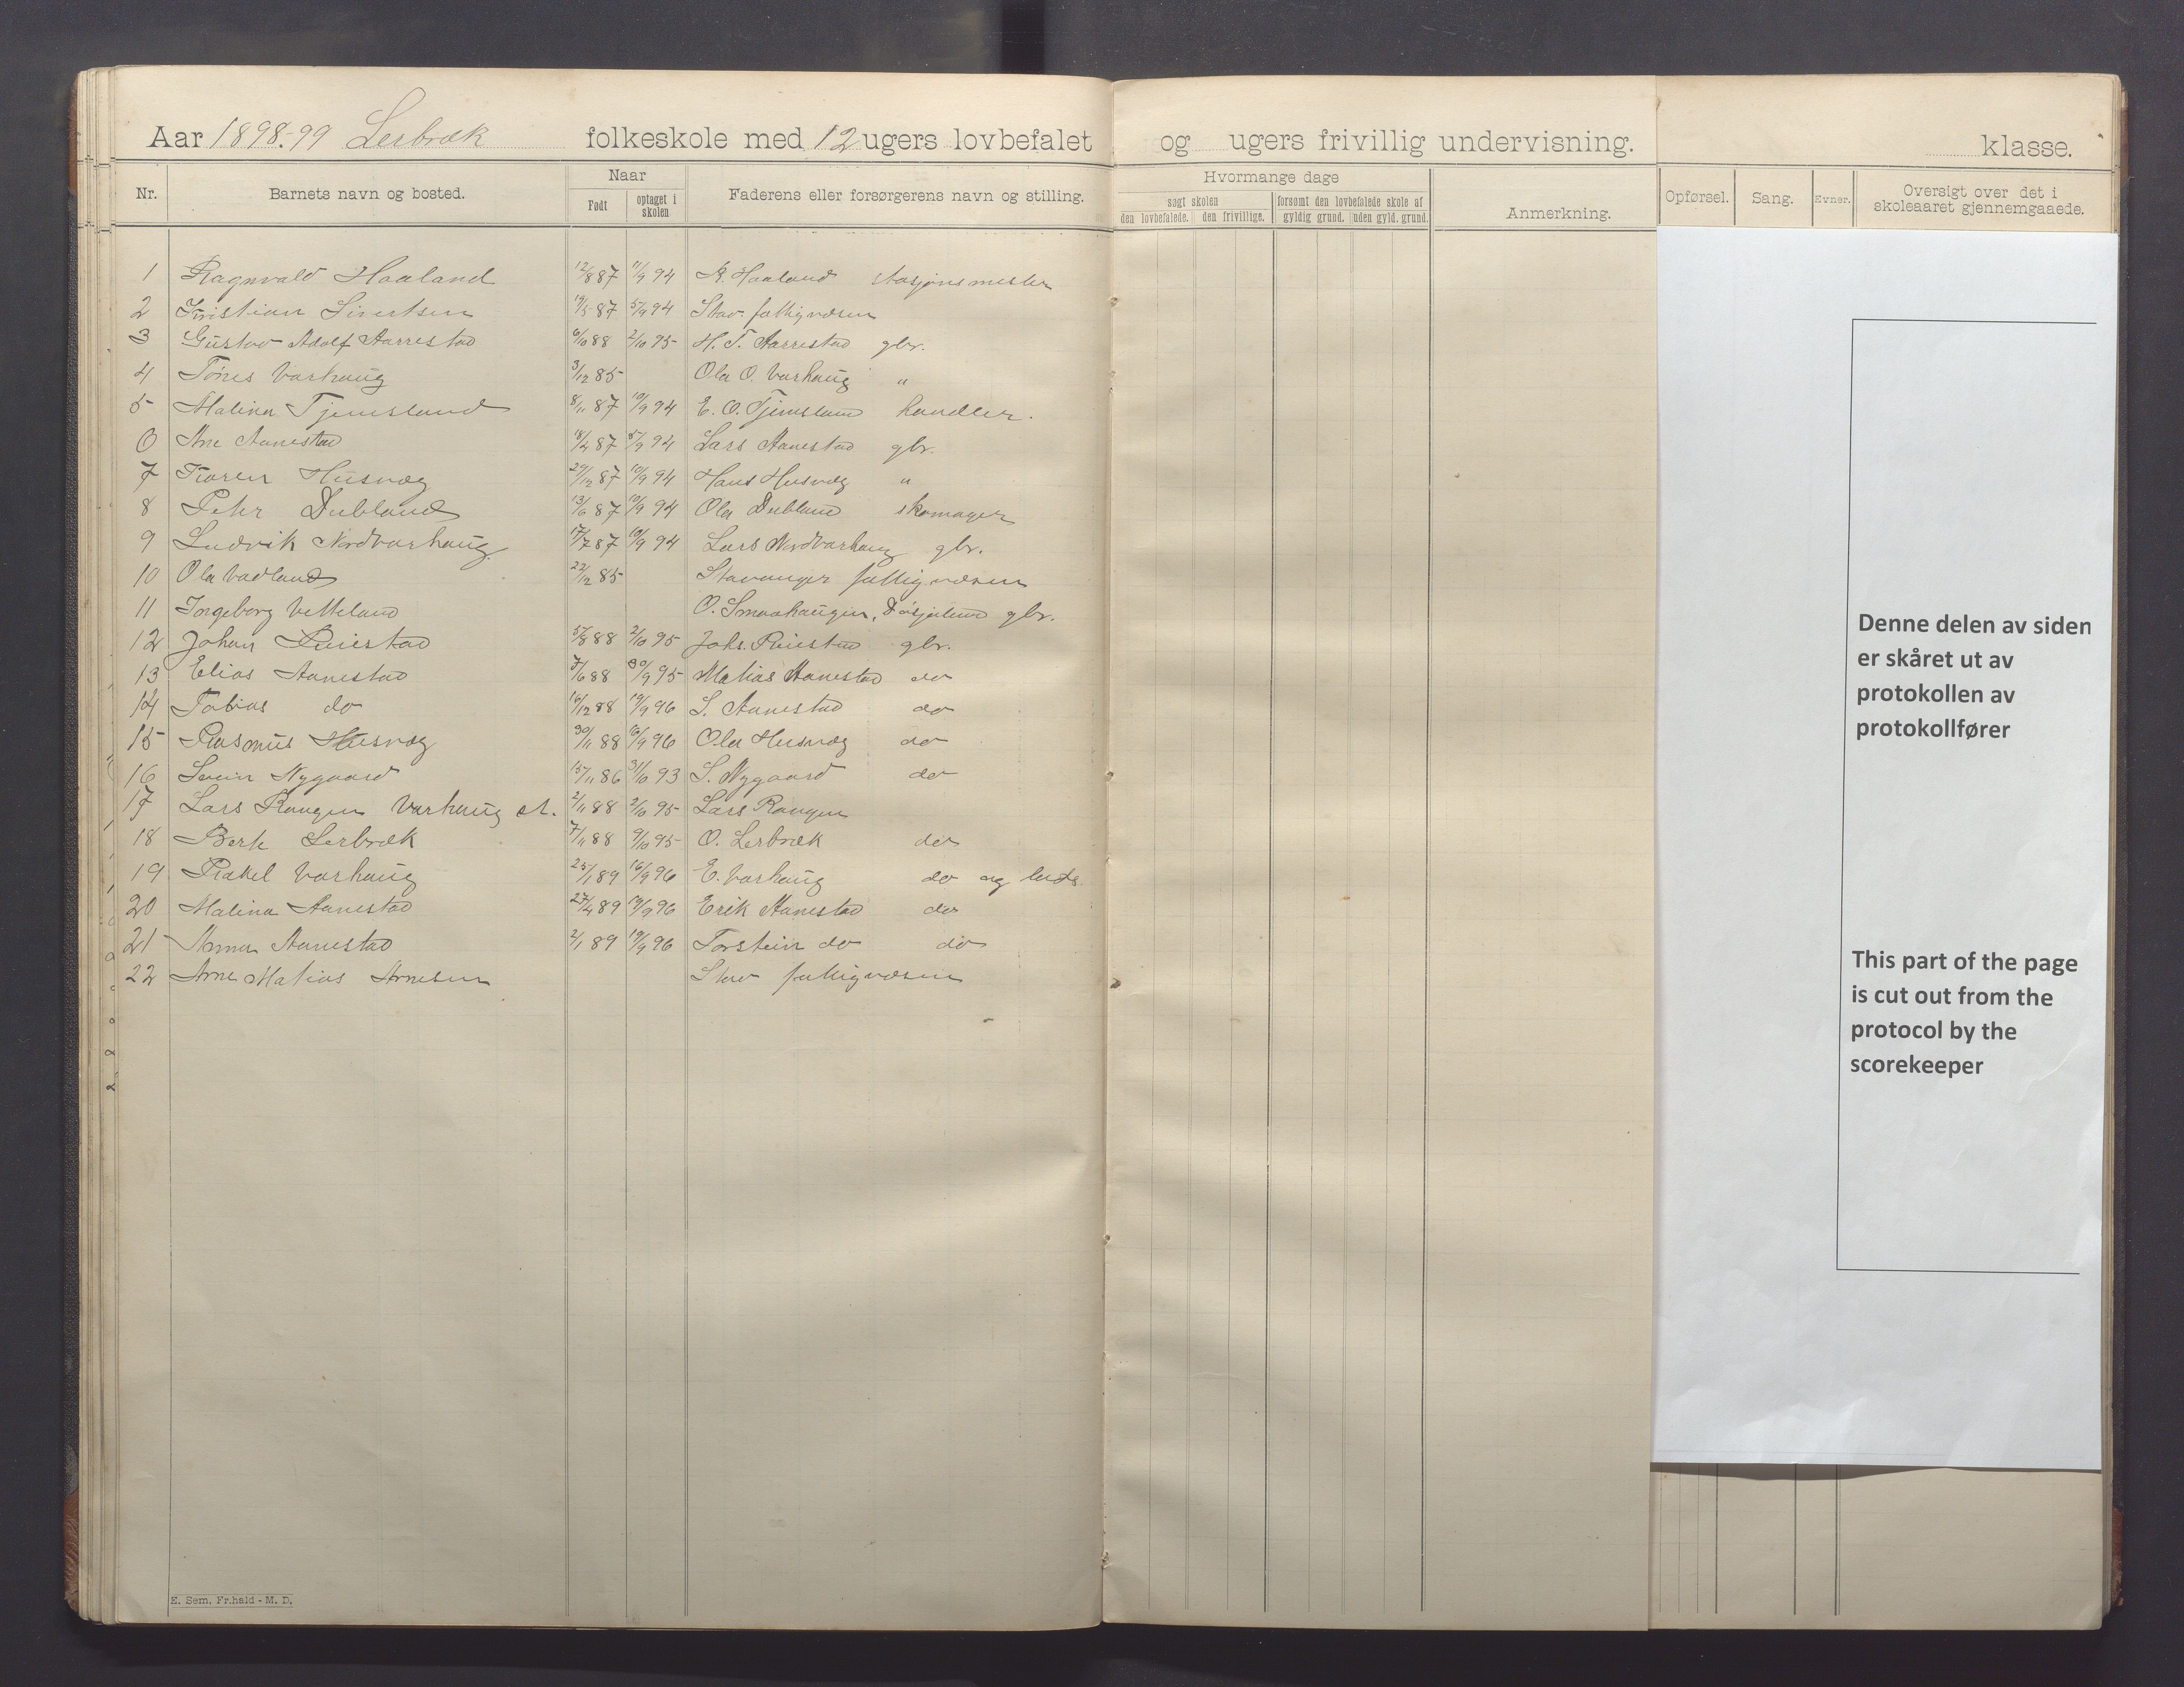 Aar 1898-99 Lerbræk folkeskole med 12 ugers lovbefalet og ugers frivillig undervisning. klasse.
Nr. Barnets navn og bosted. Naar Født optaget i skolen Faderens eller forsørgerens navn og stilling. Hvormange dage søgt skolen den lovbefalede. den frivillige. forsømt den lovbefalede skole af gyldig grund. uden gyld. grund. Anmerkning. Opførsel. Sang. Evner. Oversigt over det i skoleaaret gjennemgaaede.
1 Ragnvald Haaland 12/8 87 11/9 94 R. Haaland stasjonsmester
2 Kristian Sivertsen 19/5 87 5/9 94 Stav. fattigvæsen
3 Gustav Adolf Aarrestad 6/10 88 2/10 95 H. T. Aarrestad gbr.
4 Tønes Varhaug 3/12 85 Ola O. Varhaug "
5 Malina Tjemsland 8/11 87 10/9 94 E. O. Tjemsland handler.
6 Ane Aanestad 18/4 87 5/9 94 Lars Aanestad gbr.
7 Karen Husvæg 29/12 87 10/9 94 Hans Husvæg "
8 Peter Dubland 13/6 87 10/9 94 Ola Dubland skomager
9 Ludvik Nordvarhaug 17/7 87 10/9 94 Lars Nordvarhaug gbr.
10 Ola Vadland 22/12 85 Stavanger fattigvæsen
11 Ingeborg Vetteland O. Smaahaugen, gbr.
12 Johan Riiestad 5/8 88 2/10 95 Johs. Riiestad gbr.
13 Elias Aanestad 7/6 88 30/9 95 Matias Aanestad do
14 Tobias do 16/12 88 19/9 96 S. Aanestad do
15 Rasmus Husvæg 30/11 88 16/9 96 Ola Husvæg do
16 Svein Nygaard 15/11 86 31/10 93 S. Nygaard do
17 Lars Raugen Varhaug st. 2/11 88 2/10 95 Lars Raugen
18 Berte Lerbræk 7/11 88 9/10 95 O. Lerbræk do
19 Rakel Varhaug 25/1 89 16/9 96 E. Varhaug do og
20 Malina Aanestad 27/4 89 19/9 96 Erik Aanestad do
21 Anna Aanestad 2/1 89 19/9 96 Torstein do do
22 Arne Matias Arnesen Stav fattigvæsen
Denne delen av siden
er skåret ut av
protokollen av
protokollfører
This part of the page
is cut out from the
protocol by the
scorekeeper
E. Sem, Fr.hald - M. D.